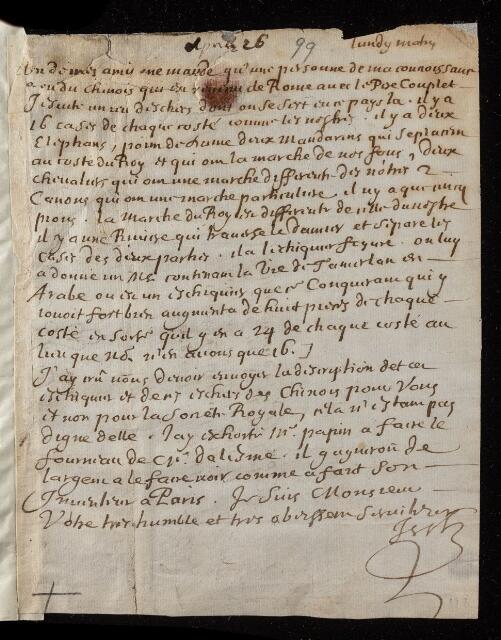 April 26 99 lundy matin
Un de mes amis me mande qu'une personne de ma connoissance
a eu du Chinois qui est revenu de Rome avec le Pere Couplet
Jesuite un jeu d'eschets dont on se sert en ce pays la. il y a
16 cases de chaque costé comme les nostres. il y a deux
Elephans, point de Dame deux Mandarins qui se placent
au costé du Roy et qui ont la marche de nos fous, deux
chevaliers qui ont une marche differente des nostres 2
Canons qui ont une marche particuliere. il n'y a que cinq
pions. la marche du Roy est differente de celle du nostre
il y a une Riviere qui traverse le Damier et separe les
cases des deux parties. il a l'echiquier figuré. on luy
a donné un Ms. contenant la Vie de Tamerlan en
Arabe ou est un eschiquier que ce Conquerant qui y
jouoit fort bien augmenta de huit pieces de chaque
costé en sorte qu'il y en a 24 de chaque costé au
lieu que nous n'en avons que 16. ]
J'ay cru vous devoir envoyer la description de cet
eschiquier et de ces eschets des Chinois pour Vous
et non pour la Societé Royale, cela n'estant pas
digne d'elle. J'ay exhorté Mr. papin a faire le
fourneau de Mr. dalesme. il gagneroit de
l'argent a le faire voir comme a fait son
Inventeur a Paris. Je suis Monsieur
Votre tres humble et tres obeissant Serviteur